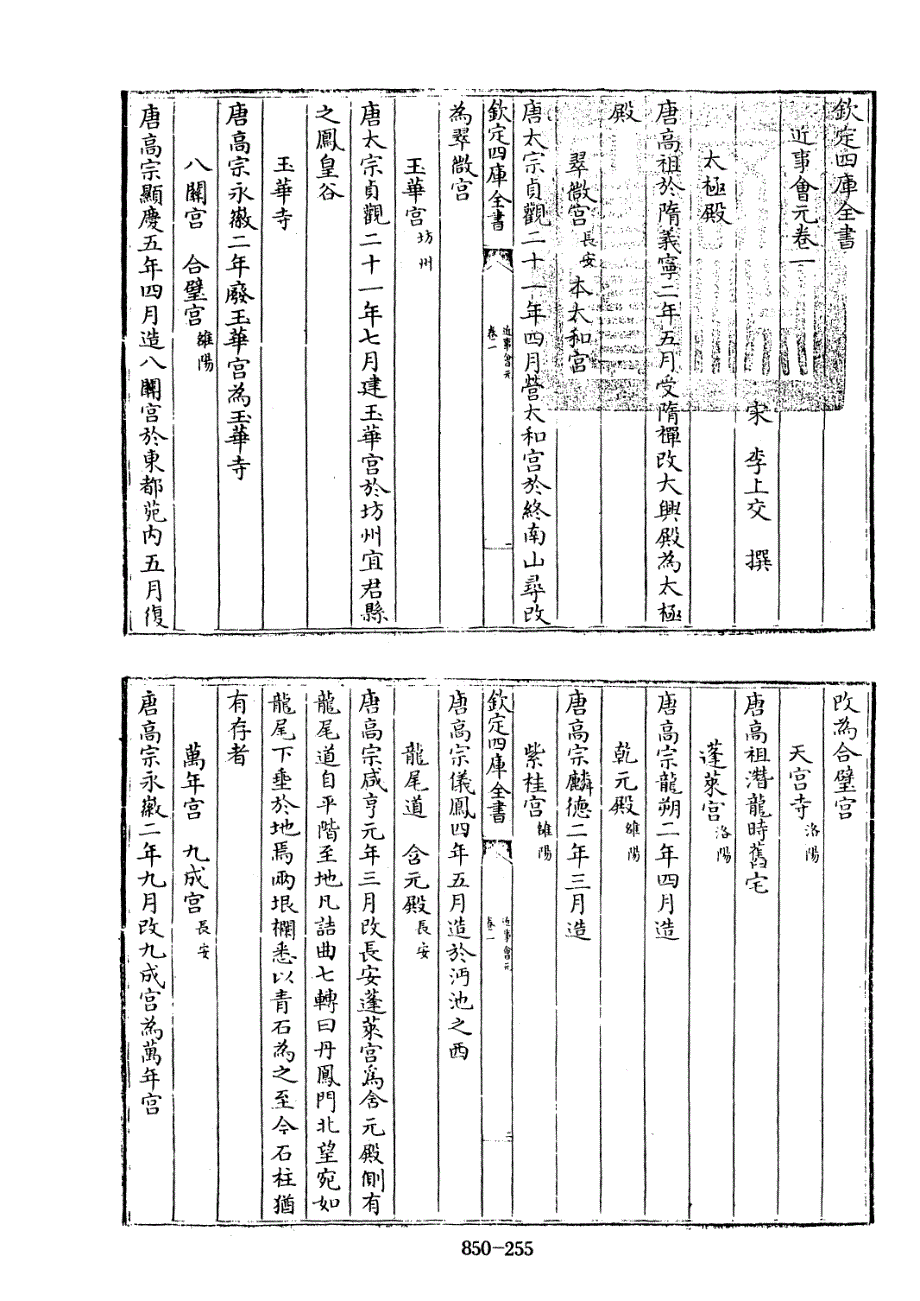 欽定四庫全書
近事會元卷一
宋 李上交 撰
太極殿
唐高祖於隋義寧二年五月受隋禪改大興殿為太極
殿
翠微宮長安 本太和宮
唐太宗貞觀二十一年四月營太和宮於終南山尋改
欽定四庫全書 近事會元 卷一 一
為翠微宮
玉華宮坊州
唐太宗貞觀二十一年七月建玉華宮於坊州宜君縣
之鳳皇谷
玉華寺
唐高宗永徽二年廢玉華宮為玉華寺
八關宮 合璧宮雒陽
唐高宗顯慶五年四月造八關宮於東都苑内五月復
改為合璧宮
天宮寺洛陽
唐高祖潛龍時舊宅
蓬萊宮洛陽
唐高宗龍朔二年四月造
乾元殿雒陽
唐高宗麟德二年三月造
紫桂宮雒陽
欽定四庫全書 近事會元 卷一 二
唐高宗儀鳳四年五月造於沔池之西
龍尾道 含元殿長安
唐高宗咸亨元年三月改長安蓬萊宮為含元殿側有
龍尾道自平階至地凡詰曲七轉曰丹鳳門北望宛如
龍尾下垂於地焉兩垠欄悉以青石為之至今石柱猶
有存者
萬年宮 九成宮長安
唐高宗永徽二年九月改九成宮為萬年宮
850-255